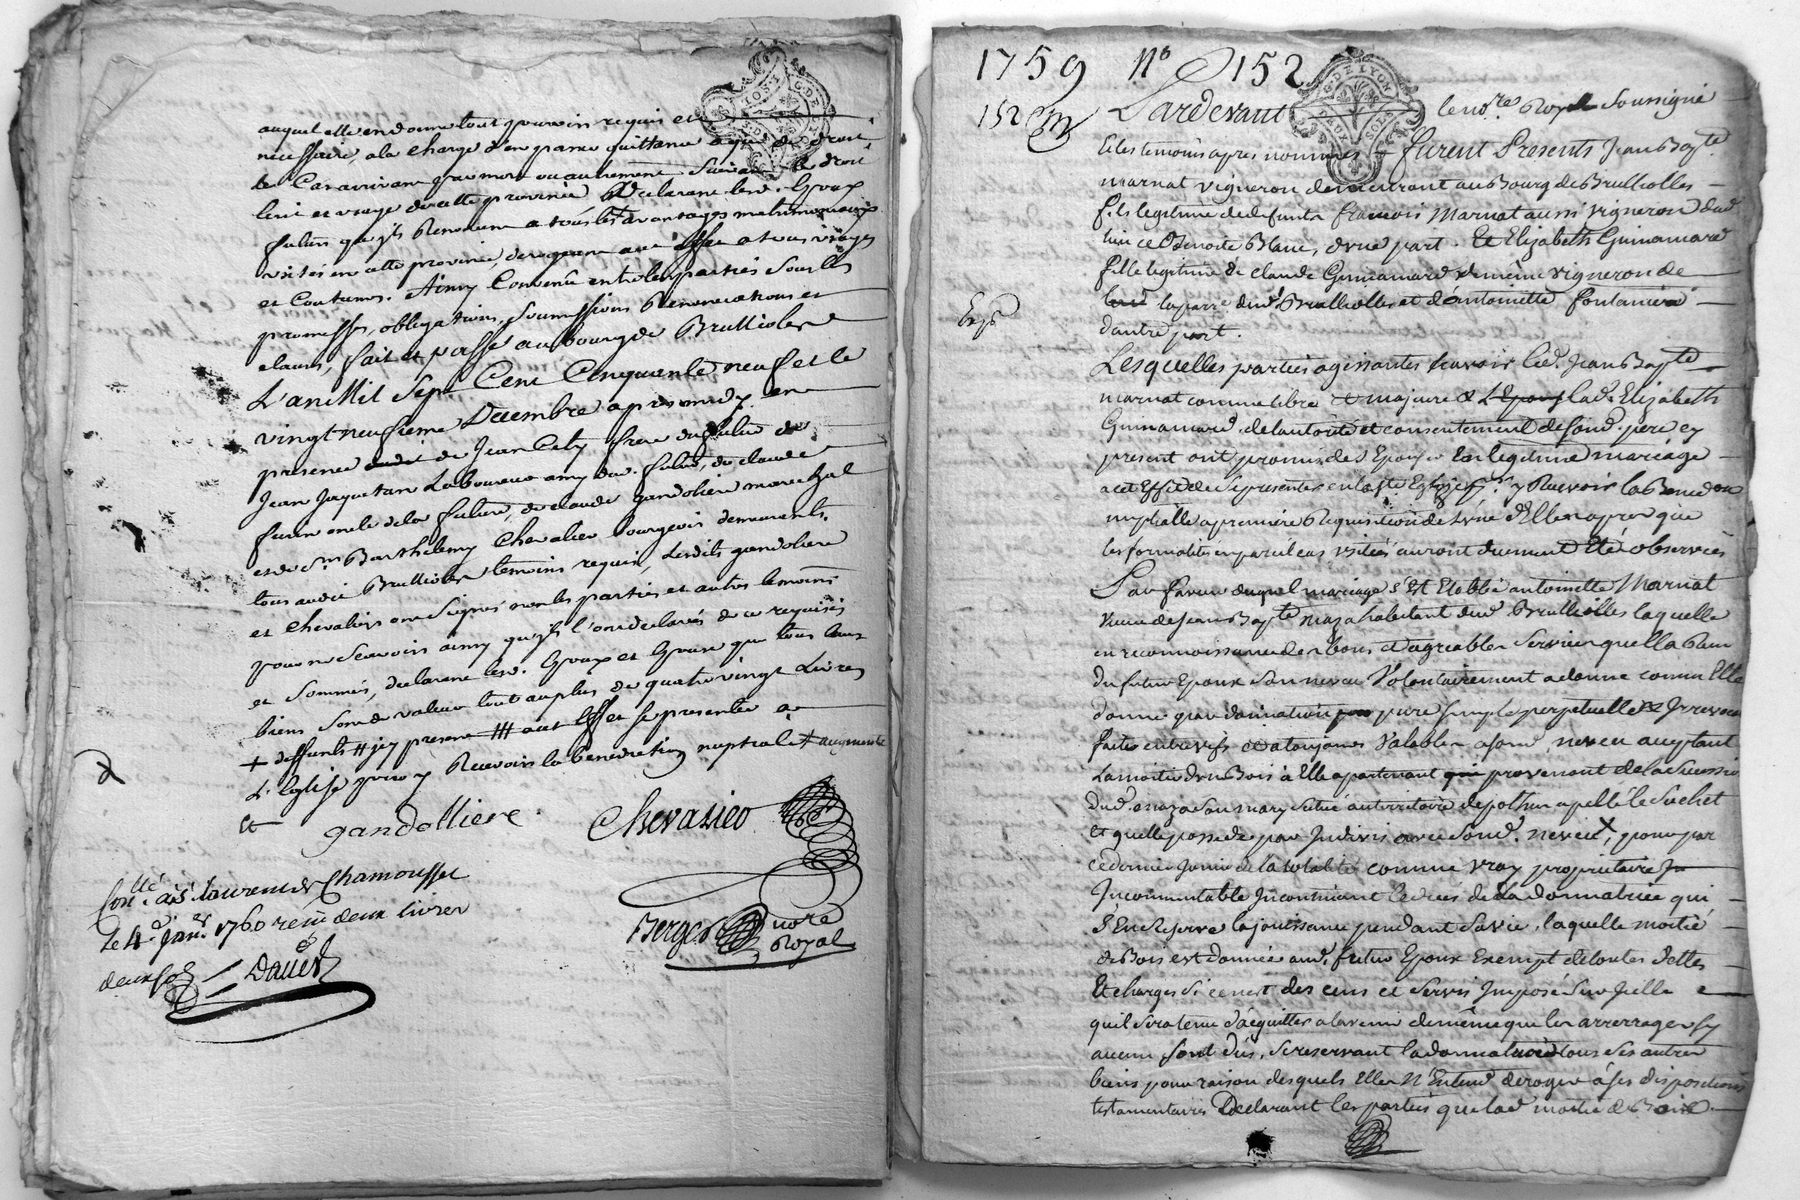 auquel elle en donne tout pouvoir requis et
nécessaire, a la charge d'en passer quittance a qui de droit
le Cas arrivant par mort ou autrement Suivant le droit
Ecrit et usage de cette province Declarant lesd. Epoux
futurs qu'ils Renoncent a tous les avantages matrimoniaux
usités en cette province, derogeant a cet effet a tous usages
et Coutumes. Ainsy Convenu entre les parties Sous les
promesses, obligations, Soumissions Renonciations et
clauses, fait et passé au bourg de Brullioles
L'an Mil Sept Cent Cinquante neuf et le
vingt neufieme Decembre apres midy en
presence de Jean frere du futur de
Jean Jaquetan Laboureur amy dud. futur, de claude
oncle de la future, de claude gandoliere marechal
et de Sr. Barthelemy Chevalier bourgeois demeurants
tous audit Brullioles temoins requis, Lesdits gandoliere
et Chevalier ont Signés non les parties et autres temoins
pour ne Scavoir ainsy qu'ils l'ont declarés de ce requis
et Sommés, declarant lesd. Epoux et Epouse que tous leurs
biens Sont de valeur tout au plus de quatre vingt Livres
+ deffunts # j'y present ### a cet Effet se presenter a
L'Eglise pour y Recevoir la benediction nuptiale # augmenté
et
gandolliere
Chevalier
Berger nore
Royal
Conllé a St laurent de Chamousset
le 4e janr. 1760 reçu deux livres
deux s
Daver
1759 No 152
152
G. DE LYON
DEUX SOLS
Pardevant le nore. Royal Soussigné
et les temoins apres nommés furent Presents Jean Bapte.
marnat vigneron demeurant au Bourg de Brullioles
fils legitime de defunts francois Marnat aussi vigneron dud
lieu et Benoite Blanc, d'une part. Et Elizabeth Guinamard
fille legitime de claude Guinamard de même vigneron de
la parr. dud. Brullioles et d'antoinette fontaniere
d'autre part.
Expé
Lesquelles parties agissantes scavoir led. Jean Bapte
marnat comme libre et majeur et Lad. Elizabeth
Guinamard, de lautorité et consentement de sond. pere cy
present ont promis de s'Epouser En legitime mariage
a cet Effet de se presenter en la ste Eglise pr. y Recevoir la Benediction
nuptialle a premiere Requisition de L'une d'Elles apres que
les formalités en pareil cas usitées auront duement Eté observées
En faveur duquel mariage s'Est Etablie antoinette Marnat
veuve de Jean Bapte maza habitant dud. Brullioles laquelle
en reconnoissance des bons et agreables Services quelle a Reçu
du futur Epoux son neveu Volontairement a donné comme Elle
donne par donation pure simple perpetuelle et Irrevocable
faite entre vifs et a toujours Valable a sond. neveu acceptant
La moitié d'un Bois à Elle apartenant provenant de la Succession
dud. maza son mary Situé au territoire de pothin apellé le Sachet
et quelle possede par Indivis avec sond. neveu, pour par
ce dernier Jouir de la totalité comme vray proprietaire
Incommutable Incontinent le deces de La donnatrice qui
s'En Reserve la jouissance pendant sa vie, laquelle moitié
de Bois est donnée aud. futur Epoux Exempt de toutes dettes
Et charges si ce nest des cens et servis Imposé sur Icelle
qu'il sera tenu d'acquitter a lavenir de même que les arrerages sy
aucuns sont dus, se reservant la donnatrice tous ses autres
biens pour raison desquels Elle n'Entend deroger a ses dispositions
testamentaires Declarant les parties que lad. moitié de Bois